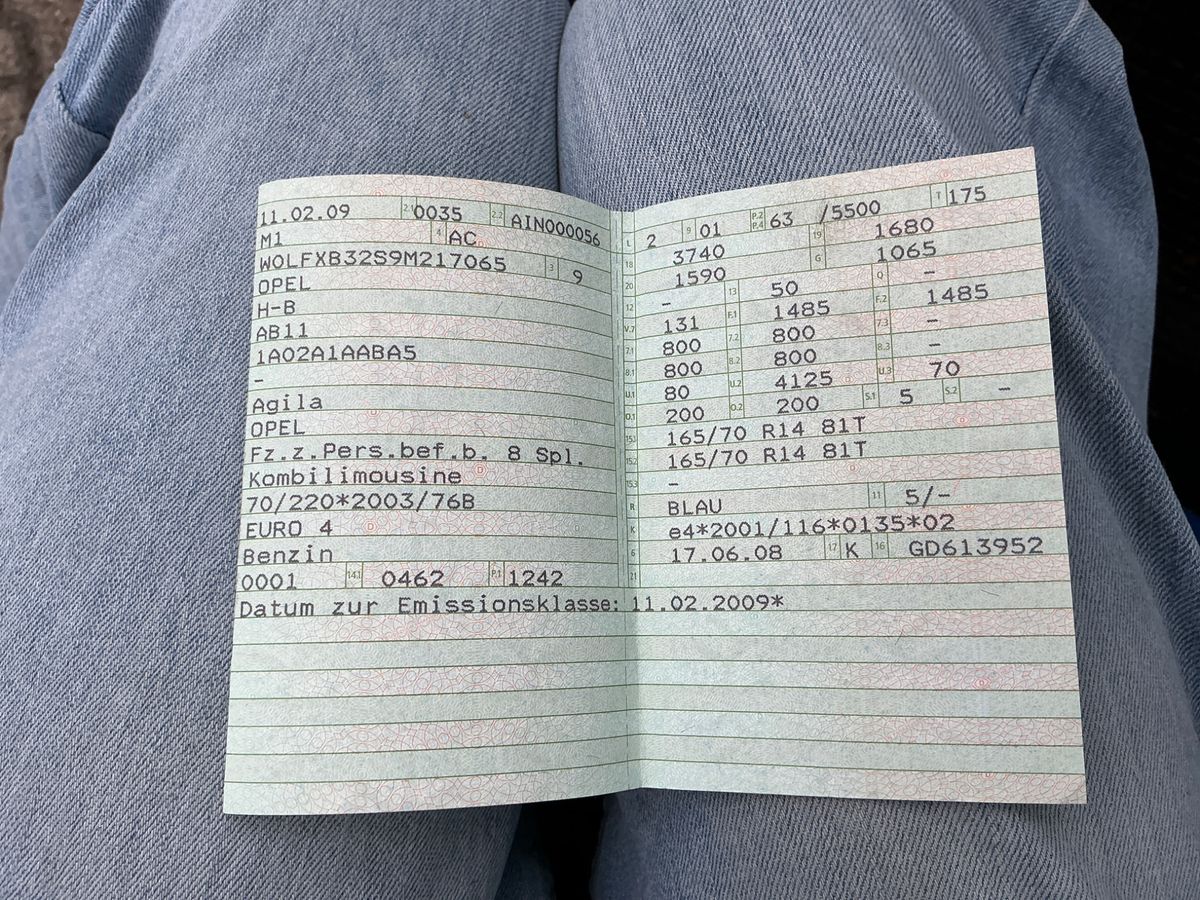 11.02.09 2.1 0035 2.2 AIN000056
M1 4 AC
W0LFXB32S9M217065 3 9
OPEL
H-B
AB11
1A02A1AABA5
-
Agila
OPEL
Fz.z.Pers.bef.b. 8 Spl.
Kombilimousine
70/220*2003/76B
EURO 4
Benzin
0001 14.1 0462 P.1 1242
Datum zur Emissionsklasse: 11.02.2009*
L 2 9 01 P.2 P.4 63 /5500 T 175
18 3740 19 1680
20 1590 G 1065
12 - 13 50 Q -
V.7 131 F.1 1485 F.2 1485
7.1 800 7.2 800 7.3 -
8.1 800 8.2 800 8.3 -
U.1 80 U.2 4125 U.3 70
O.1 200 O.2 200 S.1 5 S.2 -
15.1 165/70 R14 81T
15.2 165/70 R14 81T
15.3 -
R BLAU 11 5/-
K e4*2001/116*0135*02
6 17.06.08 17 K 16 GD613952
21